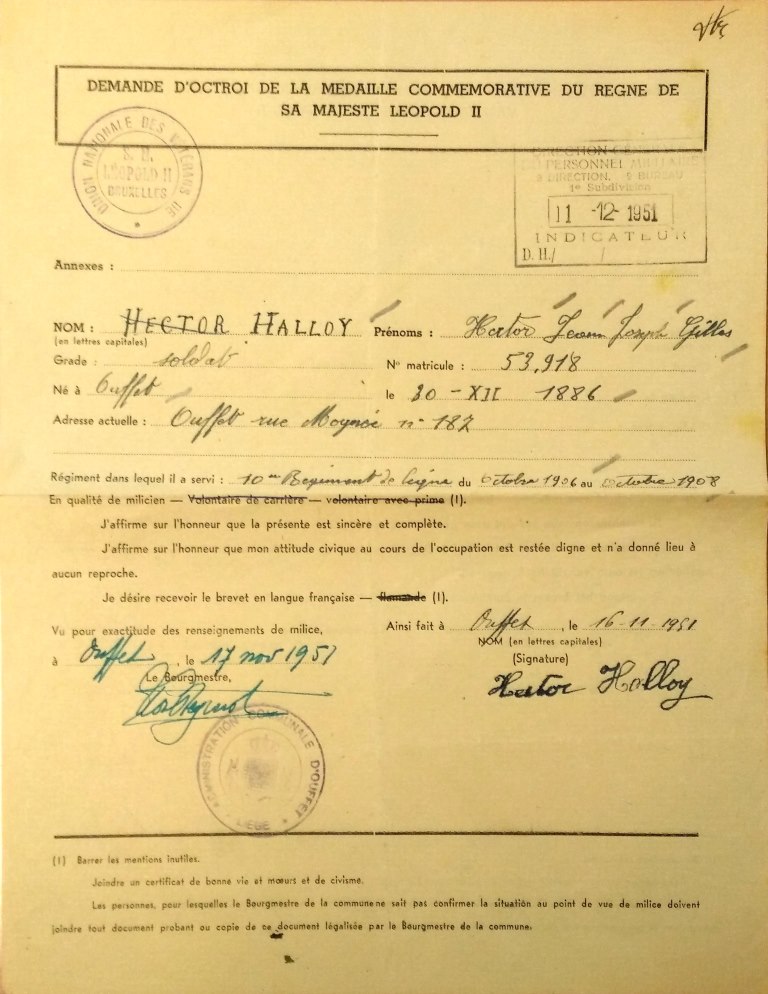 DEMANDE D'OCTROI DE LA MEDAILLE COMMEMORATIVE DU REGNE DE
SA MAJESTE LEOPOLD II
UNION NATIONALE DES VETERANS DE
S. M.
LEOPOLD II
BRUXELLES
PERSONNEL MILITAIRE
DIRECTION, 9 BUREAU
1e Subdivision
11 -12- 1951
INDICATEUR
D. H./ /
Annexes :
NOM : HECTOR HALLOY Prénoms : Hector Jean Joseph Gilles
(en lettres capitales)
Grade : soldat No matricule : 53,918
Né à Ouffet le 20 -XII 1886
Adresse actuelle : Ouffet rue n° 187
Régiment dans lequel il a servi : 10me Regiment de ligne du Octobre 1906 au Octobre 1908
En qualité de milicien — Volontaire de carrière — volontaire avec prime (1).
J'affirme sur l'honneur que la présente est sincère et complète.
J'affirme sur l'honneur que mon attitude civique au cours de l'occupation est restée digne et n'a donné lieu à
aucun reproche.
Je désire recevoir le brevet en langue française — flamande (1).
Vu pour exactitude des renseignements de milice,
Ainsi fait à Ouffet, le 16-11-1951
NOM (en lettres capitales)
(Signature)
à Ouffet, le 17 nov 1951
Le Bourgmestre,
Hector Halloy
ADMINISTRATION COMMUNALE D'OUFFET
LIEGE
(1) Barrer les mentions inutiles.
Joindre un certificat de bonne vie et mœurs et de civisme.
Les personnes, pour lesquelles le Bourgmestre de la communene sait pas confirmer la situation au point de vue de milice doivent
joindre tout document probant ou copie de ce document légalisée par le Bourgmestre de la commune.